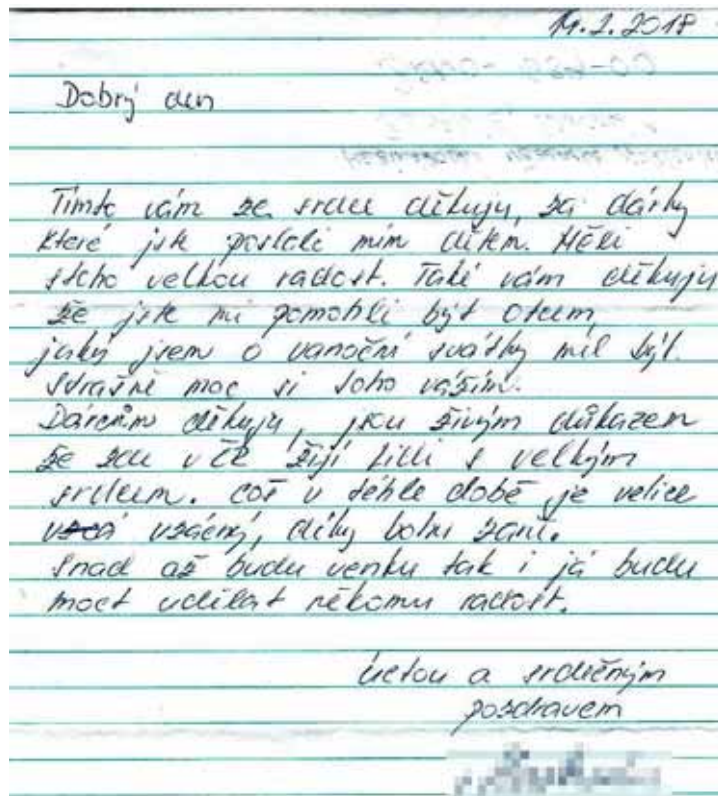 14.2.2018
Dobrý den
Tímto vám ze srdce děkuju, za dárky
které jste poslali mím dětem. Měli
stoho velkou radost. Také vám děkuju
že jste mi pomohli být otcem,
jaký jsem o vanoční svátky měl být.
Strašně moc si toho vážím.
Dárcům děkuju, jsou živým důkazem
že zde v ČR žijí lidi s velkým
srdcem. což v téhle době je velice
vzácný, díky bohu zaně.
Snad až budu venku tak i já budu
moct udělat někomu radost.
úctou a srdečným
pozdravem